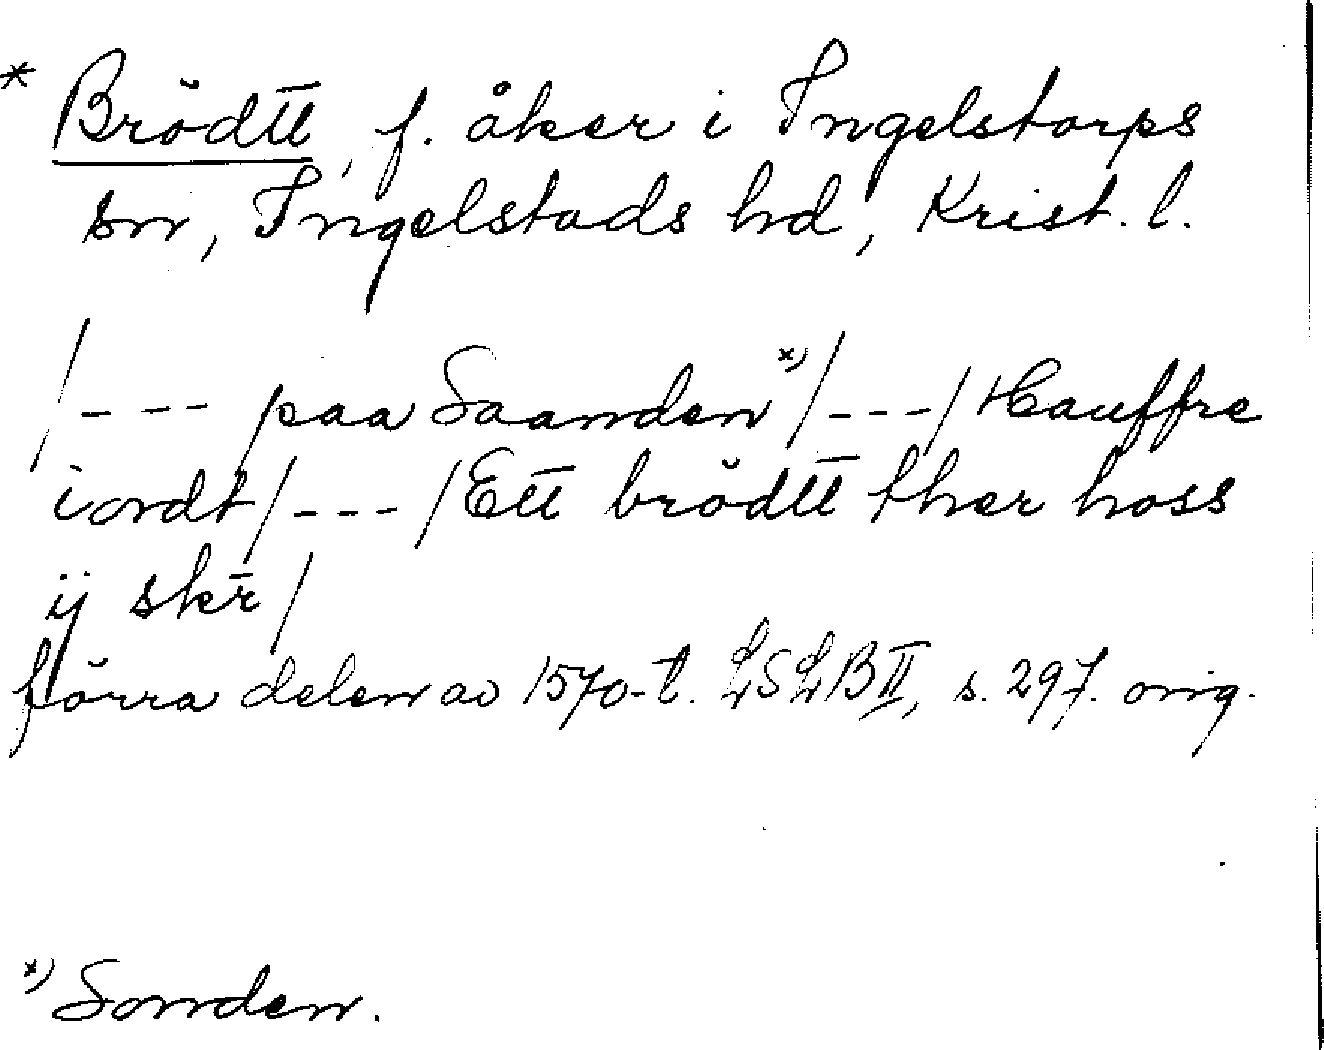 * Brödtt, f. åker i Ingelstorps
sn, Ingelstads hd, Krist. l.
/--- paa Saanden x) /---/ Hauffre
iordt /---/ Ett brödtt ther hoss
ij skr̄ /
förra delen av 1570-t. LSLB II, s. 297. orig.
x) Sonden.